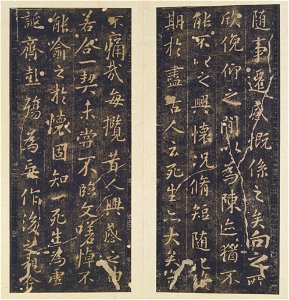 隨事遷感慨係之矣向之所
欣俛仰之閒以為陳迹猶不
能不以之興懷況脩短隨化終
期於盡古人云死生亦大矣豈
不痛哉每攬昔人興感之由
若合一契未嘗不臨文嗟悼不
能喻之於懷固知一死生為虛
誕齊彭殤為妄作後之視今